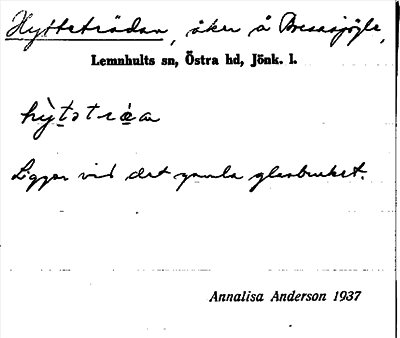 Hytteträdan, åker å Bresasjöyle,
Lemnhults sn, Östra hd, Jönk. l.
Ligger vid det gamla glasbruket.
Annalisa Anderson 1937